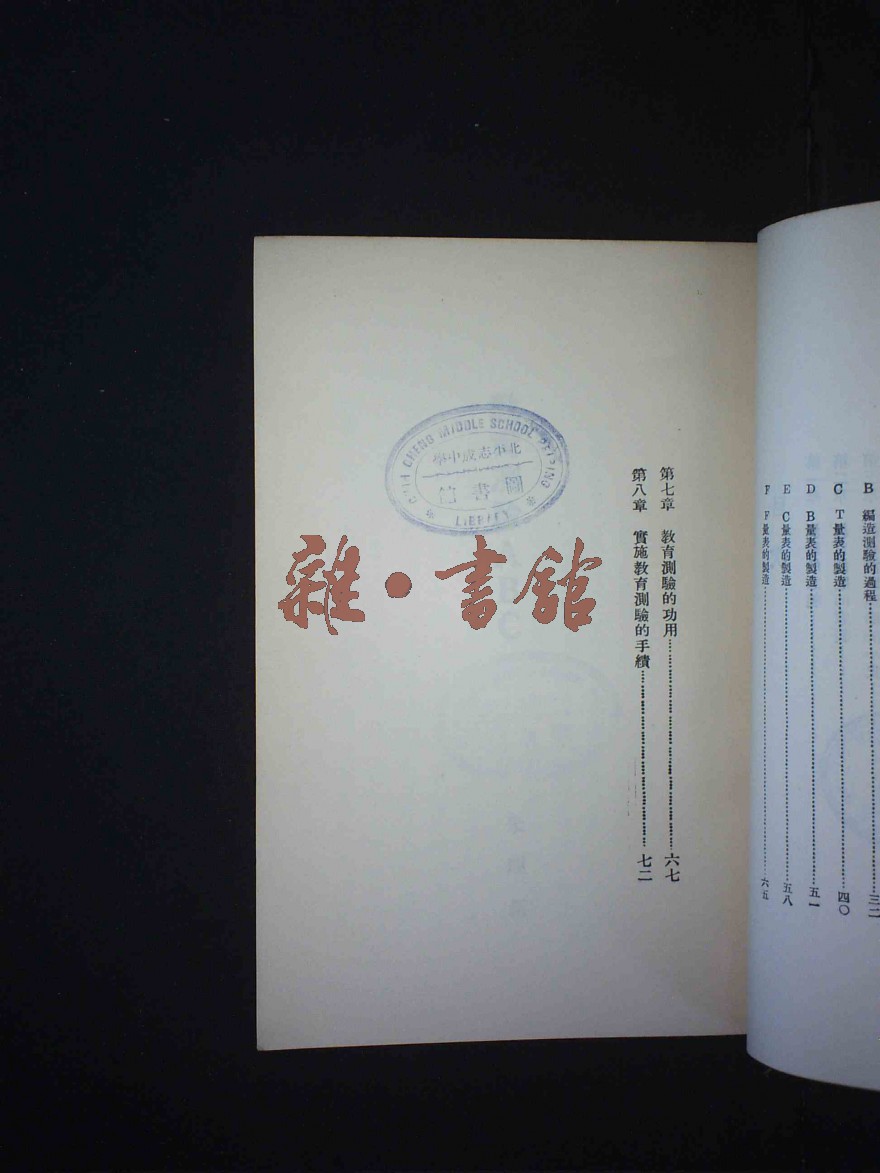 B 編造測驗的過程……三二
C T量表的製造……四〇
D B量表的製造……五一
E C量表的製造……五八
F F量表的製造……六五
第七章 教育測驗的功用……六七
第八章 實施教育測驗的手續……七二
CHIH CHENG MIDDLE SCHOOL PEIPING
北平志成中學
圖書館
LIBRARY
雜·書館